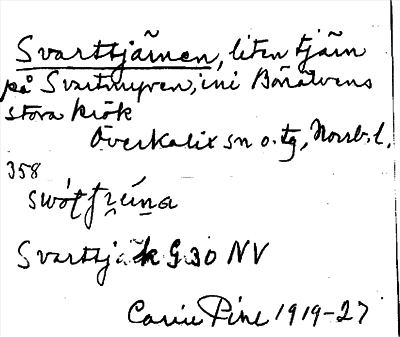 Svarttjärnen, liten tjärn
på Svartmyren, ini Börälvens
stora krök
Överkalix sn o. tg, Norrb. l.
358
Svarttjäk G 30 NV
Carin Pihl 1919-27